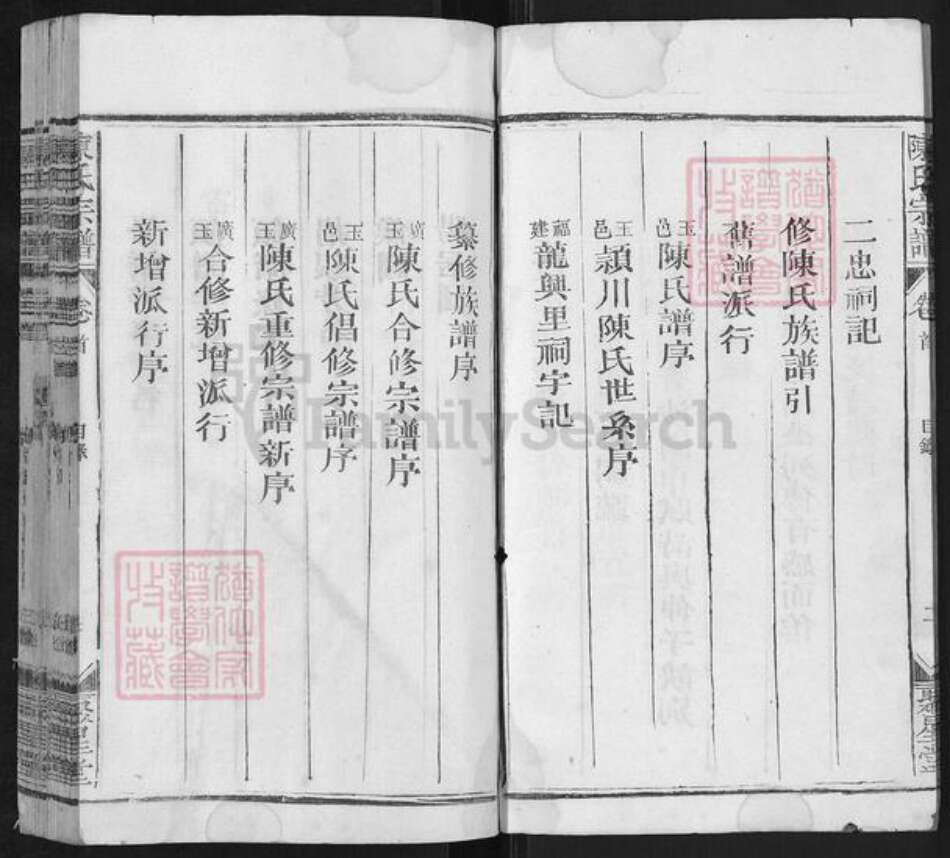 陳氏宗譜
卷首
目錄
二
聚星堂
二忠祠記
修陳氏族譜引
舊譜派行
玉邑陳氏譜序
玉邑潁川陳氏世系序
福建龍興里祠宇記
纂修族譜序
廣玉陳氏合修宗譜序
玉邑陳氏倡修宗譜序
廣玉陳氏重修宗譜新序
廣玉合修新增派行
新增派行序
陳氏宗譜
卷首
目錄
聚星堂
FamilySearch